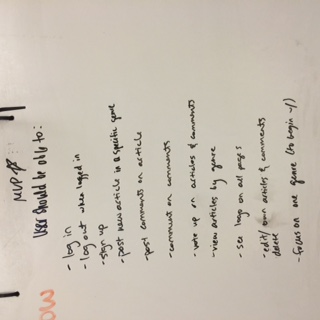 MVP
User Should be able to:
OW
- log in
- log out when logged in
- sign up
- post new article in a specific genre
- post comments on article
- comment on comments
- vote up on articles & comments
- view articles by genre
- see logo on all pages
- edit/ own articles & comments
delete
- focus on one genre (to begin w/)